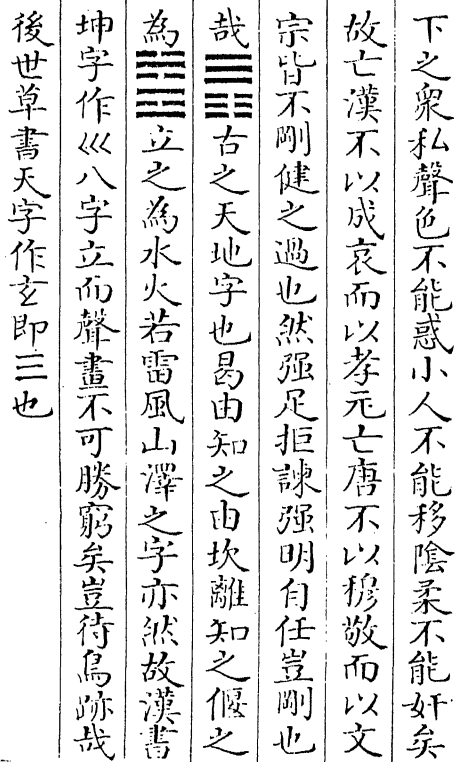 下之衆私聲色不能惑小人不能移陰柔不能奸矣
故亡漢不以成哀而以孝元亡唐不以穆敬而以文
宗皆不剛健之過也然强足拒諫强明自任豈剛也
哉☰☷古之天地字也曷由知之由坎離知之偃之
為☵☲立之為水火若雷風山澤之字亦然故漢書
坤字作巛八字立而聲畫不可勝窮矣豈待鳥跡哉
後世草書天字作玄即☰也